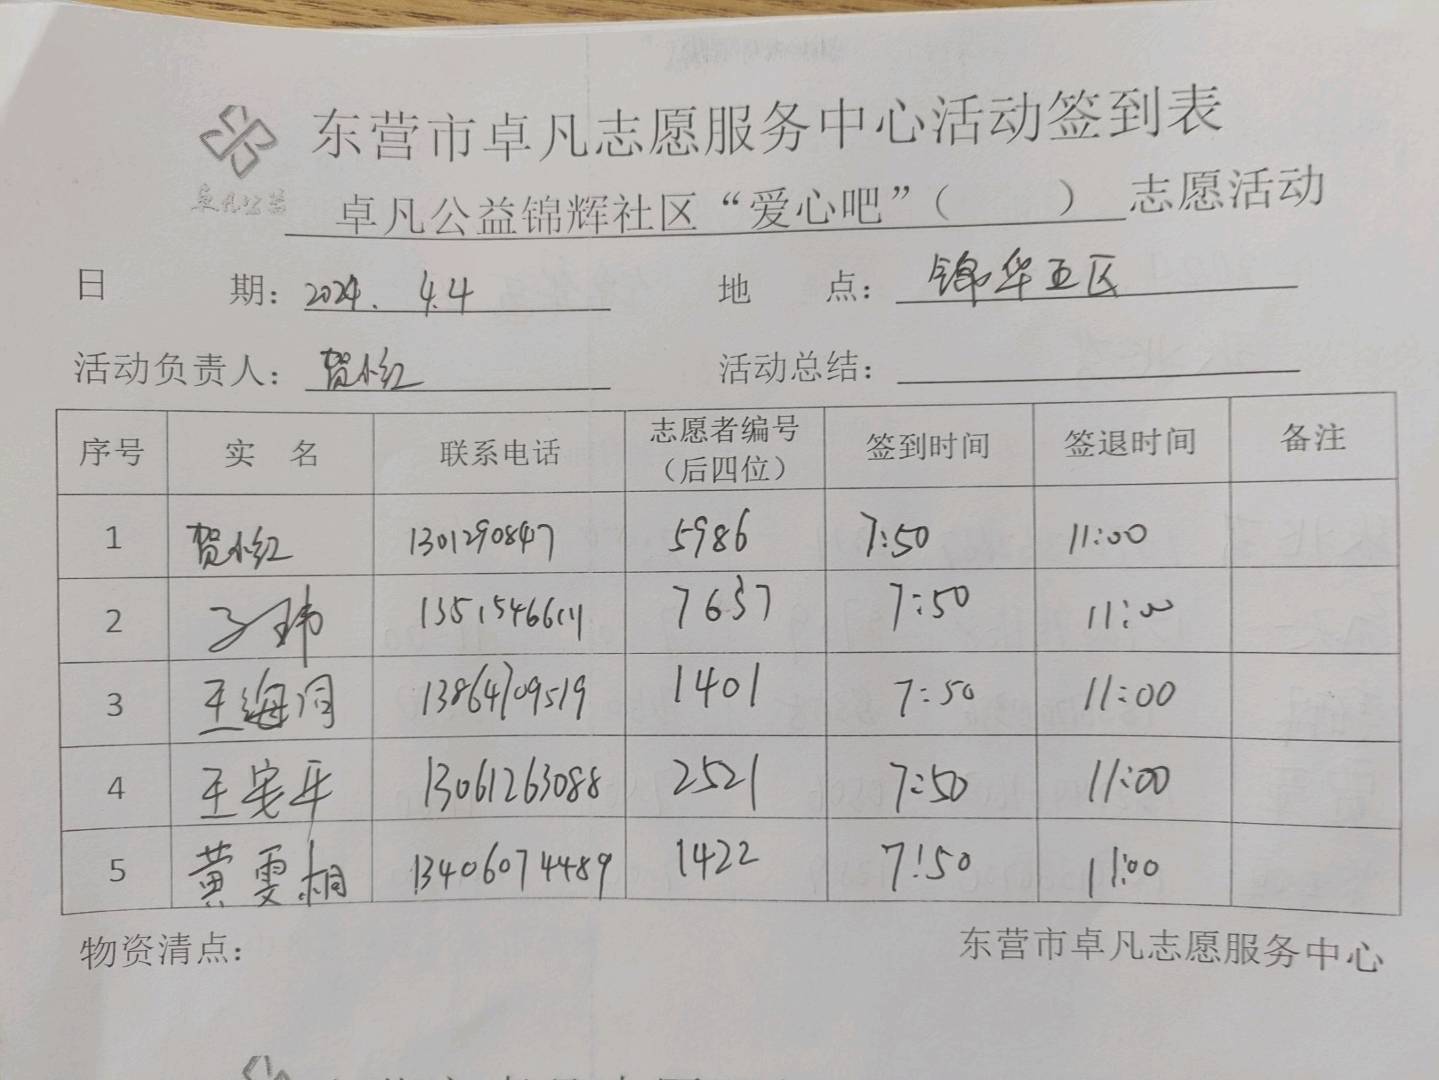 东营市卓凡志愿服务中心活动签到表
卓凡公益
卓凡公益锦辉社区“爱心吧”（ ）志愿活动
日 期：2024.4.4 地 点：锦华五区
活动负责人：贺小红 活动总结：
序号 实 名 联系电话 志愿者编号（后四位） 签到时间 签退时间 备注
1 贺小红 1301290847 5986 7:50 11:00
2 7637 7:50 11:00
3 王海 13864709519 1401 7:50 11:00
4 王宪平 13061263088 2521 7:50 11:00
5 黄雯桐 13406074489 1422 7:50 11:00
物资清点： 东营市卓凡志愿服务中心